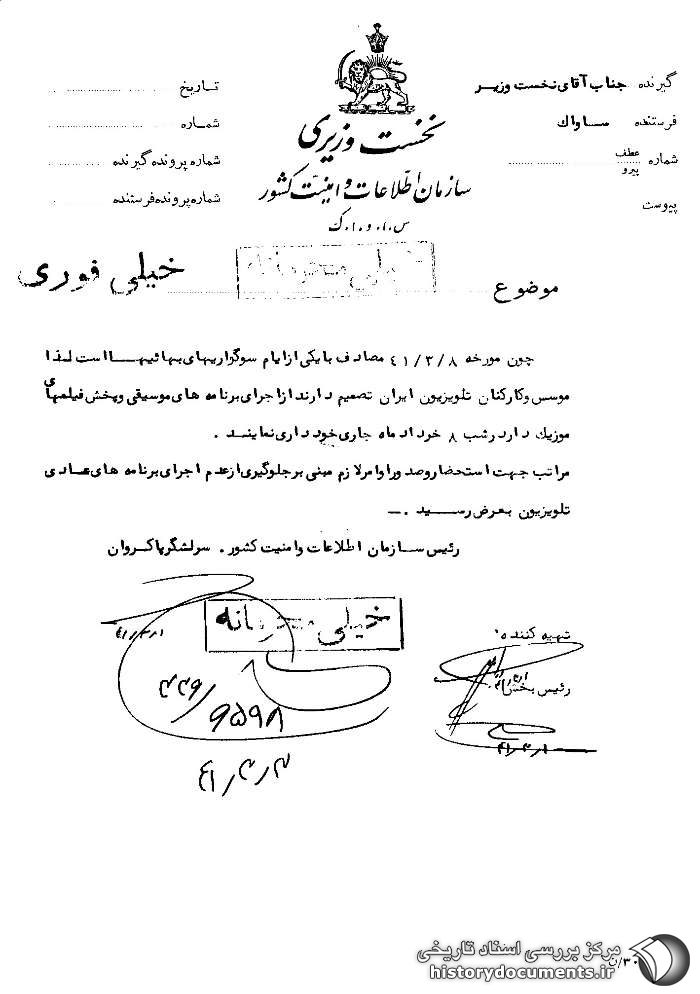 گیرنده جناب آقای نخست وزیر
فرستنده ساواک
شماره عطف پیرو
پیوست
نخست وزیری
سازمان اطلاعات و امنیت کشور
س.ا.و.ا.ک
تاریخ
شماره
شماره پرونده گیرنده
شماره پرونده فرستنده
خیلی محرمانه
موضوع
خیلی فوری
چون مورخه ۴۱/۳/۸ مصادف با یکی از ایام سوگواریهای بهائیها است لذا
موسس و کارکنان تلویزیون ایران تصمیم دارند از اجرای برنامه های موسیقی و پخش فیلمهای
موزیک دار در شب ۸ خرداد ماه جاری خودداری نمایند .
مراتب جهت استحضار و صدور اوامر لازم مبنی بر جلوگیری از عدم اجرای برنامه های عادی
تلویزیون بعرض رسید .ـ
رئیس سازمان اطلاعات و امنیت کشور . سرلشگر پاکروان
خیلی محرمانه
۴۱/۳/۱
تهیه کننده
رئیس بخش
۴۱/۳/۱
۹۵۹۸
۴۱/۳/۳
۳۰/ن
مرکز بررسی اسناد تاریخی
historydocuments.ir